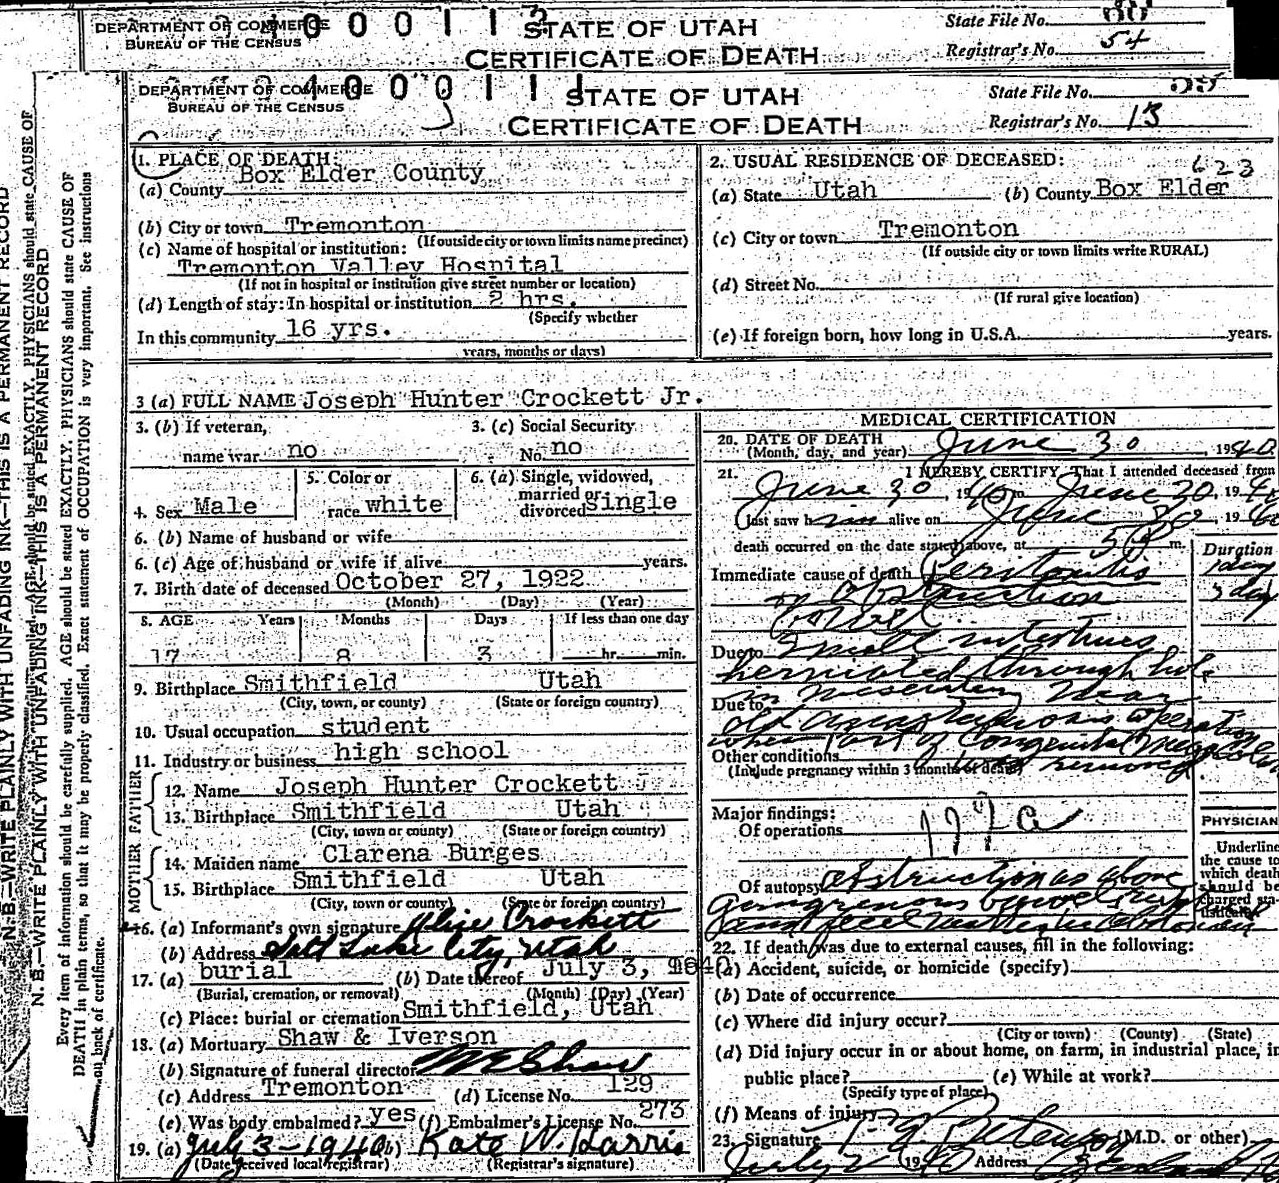 DEPARTMENT OF COMMERCE STATE OF UTAH State File No.
BUREAU OF THE CENSUS CERTIFICATE OF DEATH Registrar's No. 54
DEPARTMENT OF COMMERCE STATE OF UTAH State File No.
BUREAU OF THE CENSUS CERTIFICATE OF DEATH Registrar's No. 13
1. PLACE OF DEATH:
(a) County Box Elder County
(b) City or town Tremonton
(If outside city or town limits name precinct)
(c) Name of hospital or institution:
Tremonton Valley Hospital
(If not in hospital or institution give street number or location)
(d) Length of stay: In hospital or institution 2 hrs.
(Specify whether
In this community 16 yrs.
years, months or days)
2. USUAL RESIDENCE OF DECEASED:
623
(a) State Utah (b) County Box Elder
(c) City or town Tremonton
(If outside city or town limits write RURAL)
(d) Street No.
(If rural give location)
(e) If foreign born, how long in U.S.A. years.
3 (a) FULL NAME Joseph Hunter Crockett Jr.
3. (b) If veteran, name war no
3. (c) Social Security No. no
4. Sex Male
5. Color or race white
6. (a) Single, widowed, married or divorced single
6. (b) Name of husband or wife
6. (c) Age of husband or wife if alive years.
7. Birth date of deceased October 27, 1922
(Month) (Day) (Year)
8. AGE Years Months Days If less than one day
17 8 3 hr. min.
9. Birthplace Smithfield Utah
(City, town, or county) (State or foreign country)
10. Usual occupation student
11. Industry or business high school
FATHER
12. Name Joseph Hunter Crockett
13. Birthplace Smithfield Utah
(City, town or county) (State or foreign country)
MOTHER
14. Maiden name Clarena Burges
15. Birthplace Smithfield Utah
(City, town or county) (State or foreign country)
16. (a) Informant's own signature Crockett
(b) Address Salt Lake City, Utah
17. (a) burial (b) Date thereof July 3, 1940
(Burial, cremation, or removal) (Month) (Day) (Year)
(c) Place: burial or cremation Smithfield, Utah
18. (a) Mortuary Shaw & Iverson
(b) Signature of funeral director Shaw
(c) Address Tremonton (d) License No. 129
(e) Was body embalmed? yes (f) Embalmer's License No. 273
19. (a) July 3-1940 (b) Kate W. Harris
(Date received local registrar) (Registrar's signature)
MEDICAL CERTIFICATION
20. DATE OF DEATH June 30, 1940
(Month, day, and year)
21. I HEREBY CERTIFY, That I attended deceased from
June 30, 1940 to June 30, 1940
last saw him alive on June 30, 1940
death occurred on the date stated above, at 5 P m.
Duration
Immediate cause of death Peritonitis 1 day
Obstruction 3 day
Bowel
Due to Small intestines
herniated through hole
Due to in mesentery near
old anastomosis operation
when part of Congenital Megacolon
Other conditions was removed
(Include pregnancy within 3 months of death)
Major findings:
Of operations
PHYSICIAN
Underline the cause to which death should be charged statistically
Of autopsy obstruction as above
Gangrenous bowel
and fecal
22. If death was due to external causes, fill in the following:
(a) Accident, suicide, or homicide (specify)
(b) Date of occurrence
(c) Where did injury occur?
(City or town) (County) (State)
(d) Did injury occur in or about home, on farm, in industrial place, in
public place? (e) While at work?
(Specify type of place)
(f) Means of injury
23. Signature (M.D. or other)
July 2 1940 Address
N. B.—WRITE PLAINLY WITH UNFADING INK—THIS IS A PERMANENT RECORD
N. B.—WRITE PLAINLY WITH UNFADING INK—THIS IS A PERMANENT RECORD
Every item of information should be carefully supplied. AGE should be stated EXACTLY. PHYSICIANS should state CAUSE OF
DEATH in plain terms, so that it may be properly classified. Exact statement of OCCUPATION is very important. See instructions
on back of certificate.